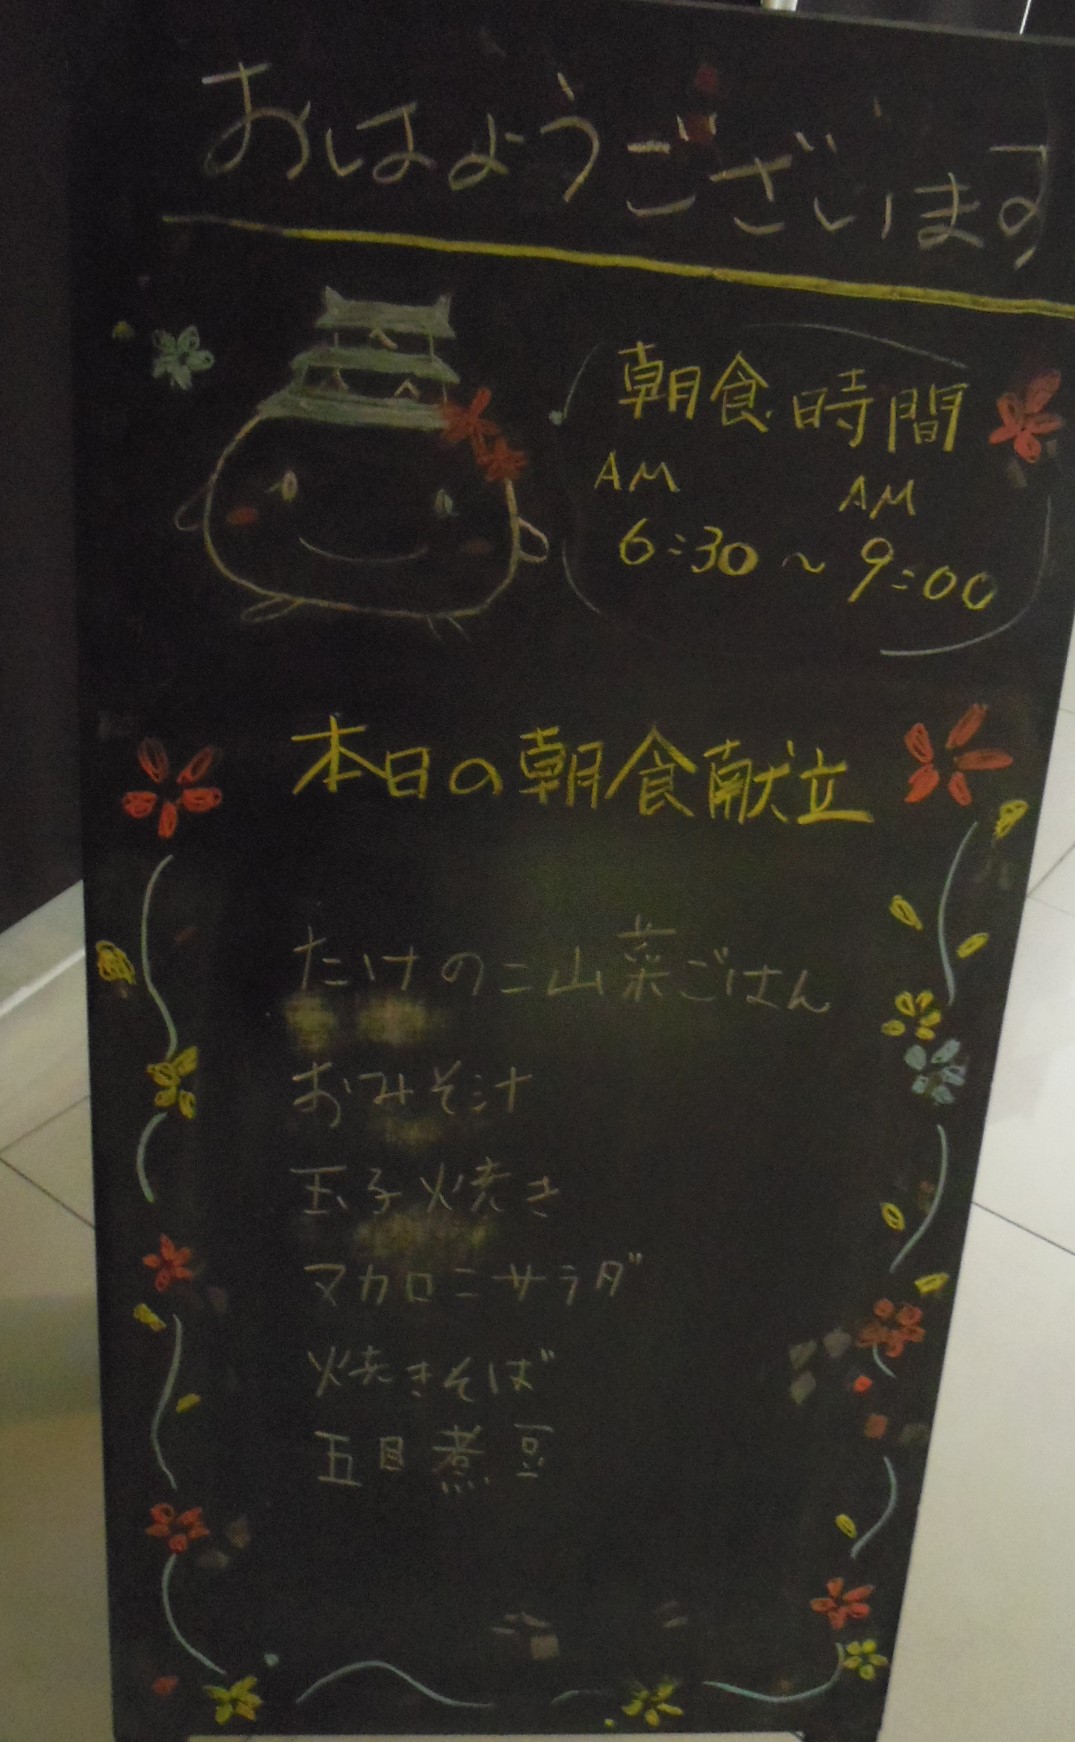 おはようございます
朝食時間
AM AM
6:30～9:00
本日の朝食献立
たけのこ山菜ごはん
おみそ汁
玉子焼き
マカロニサラダ
焼きそば
五目煮豆